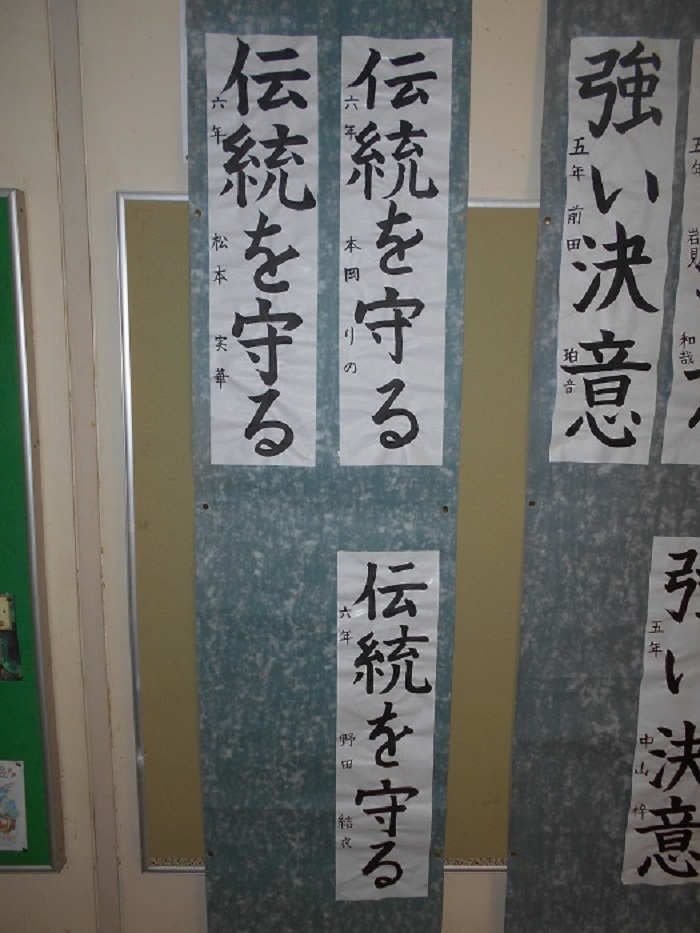 強い決意
五年 前田 珀音
五年
和哉
強い決意
五年 中山 梓
伝統を守る
六年 本岡 りの
伝統を守る
六年 松本 実華
伝統を守る
六年 野田 結衣